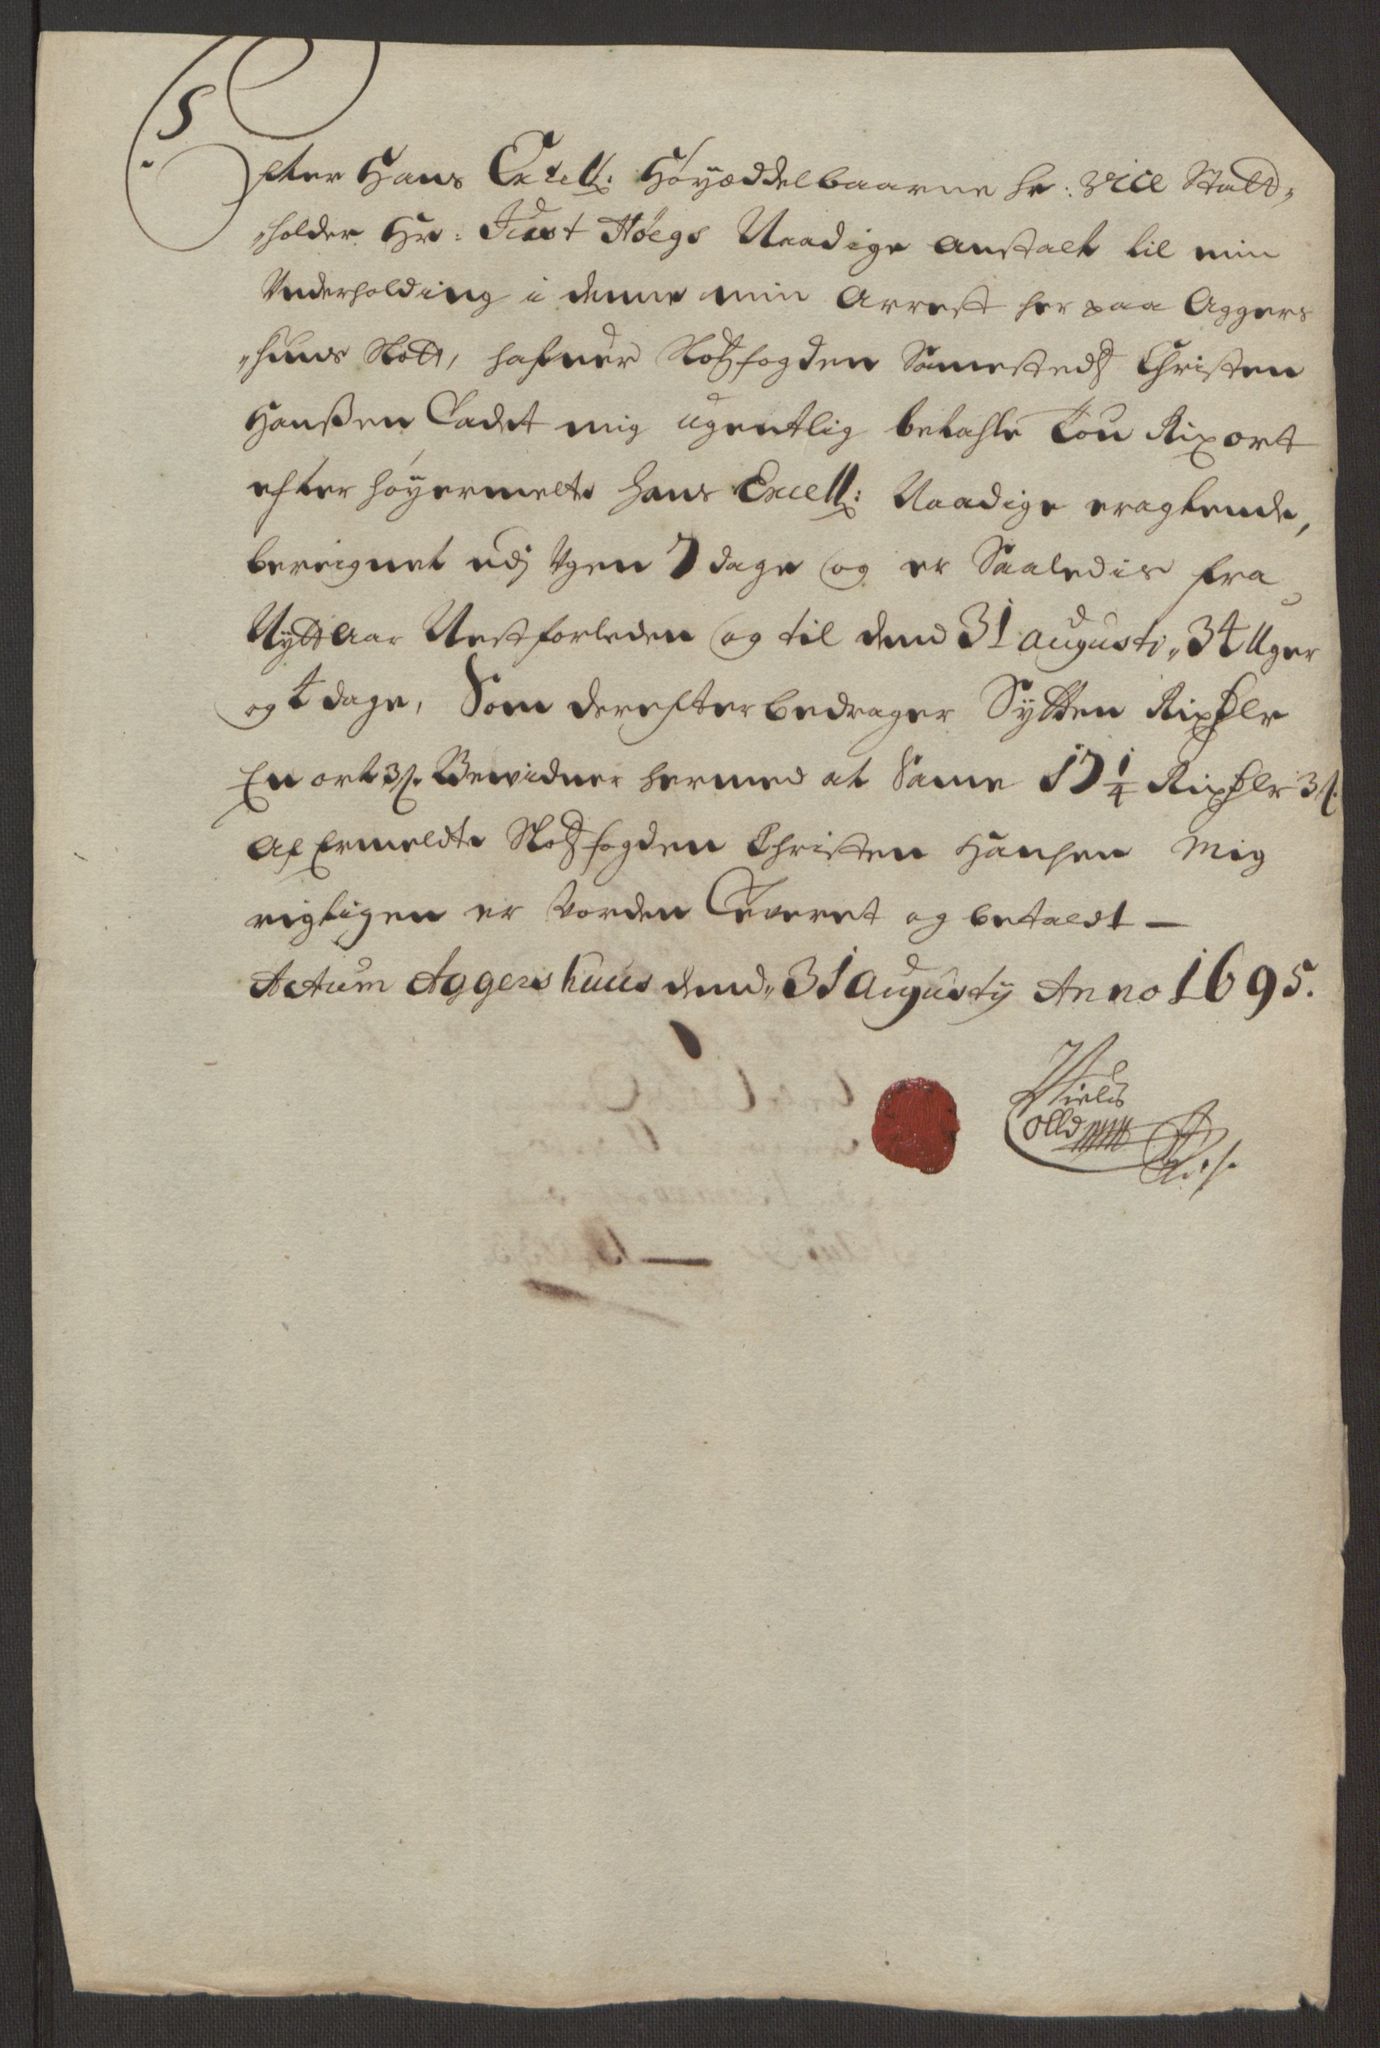 Efter Hans Excell: Høyædelbaarne hr: Vice Statt„
„holder Hr: Just Høegs Naadige anstalt til min
Vnderholding i denne min Arrest her paa Aggers
„huus Slott, hafuer Slotzfogden Sammestedz Christen
Hanßen Ladet mig ugentlig betahle tou Rixort
efter høyermelte hans Excell: Naadige eragtende,
bereignet udj Vgen 7 dage og er Saaledis fra
Nytt Aar Nestforleden og til dend 31 augusti„ 34 Uger
og 4 dage, Som derefter bedrager Sytten Rixdlr
En ort 3 s. Bewidner hermed at Same 17 1/4 Rixdlr 3 s.
Af Ermeldte Slotzfogden Christen Hansen Mig
rigtigen er vorden Leveret og betaldt —
Actum Aggershuus dend„ 31 augustij Anno 1695.
Niels